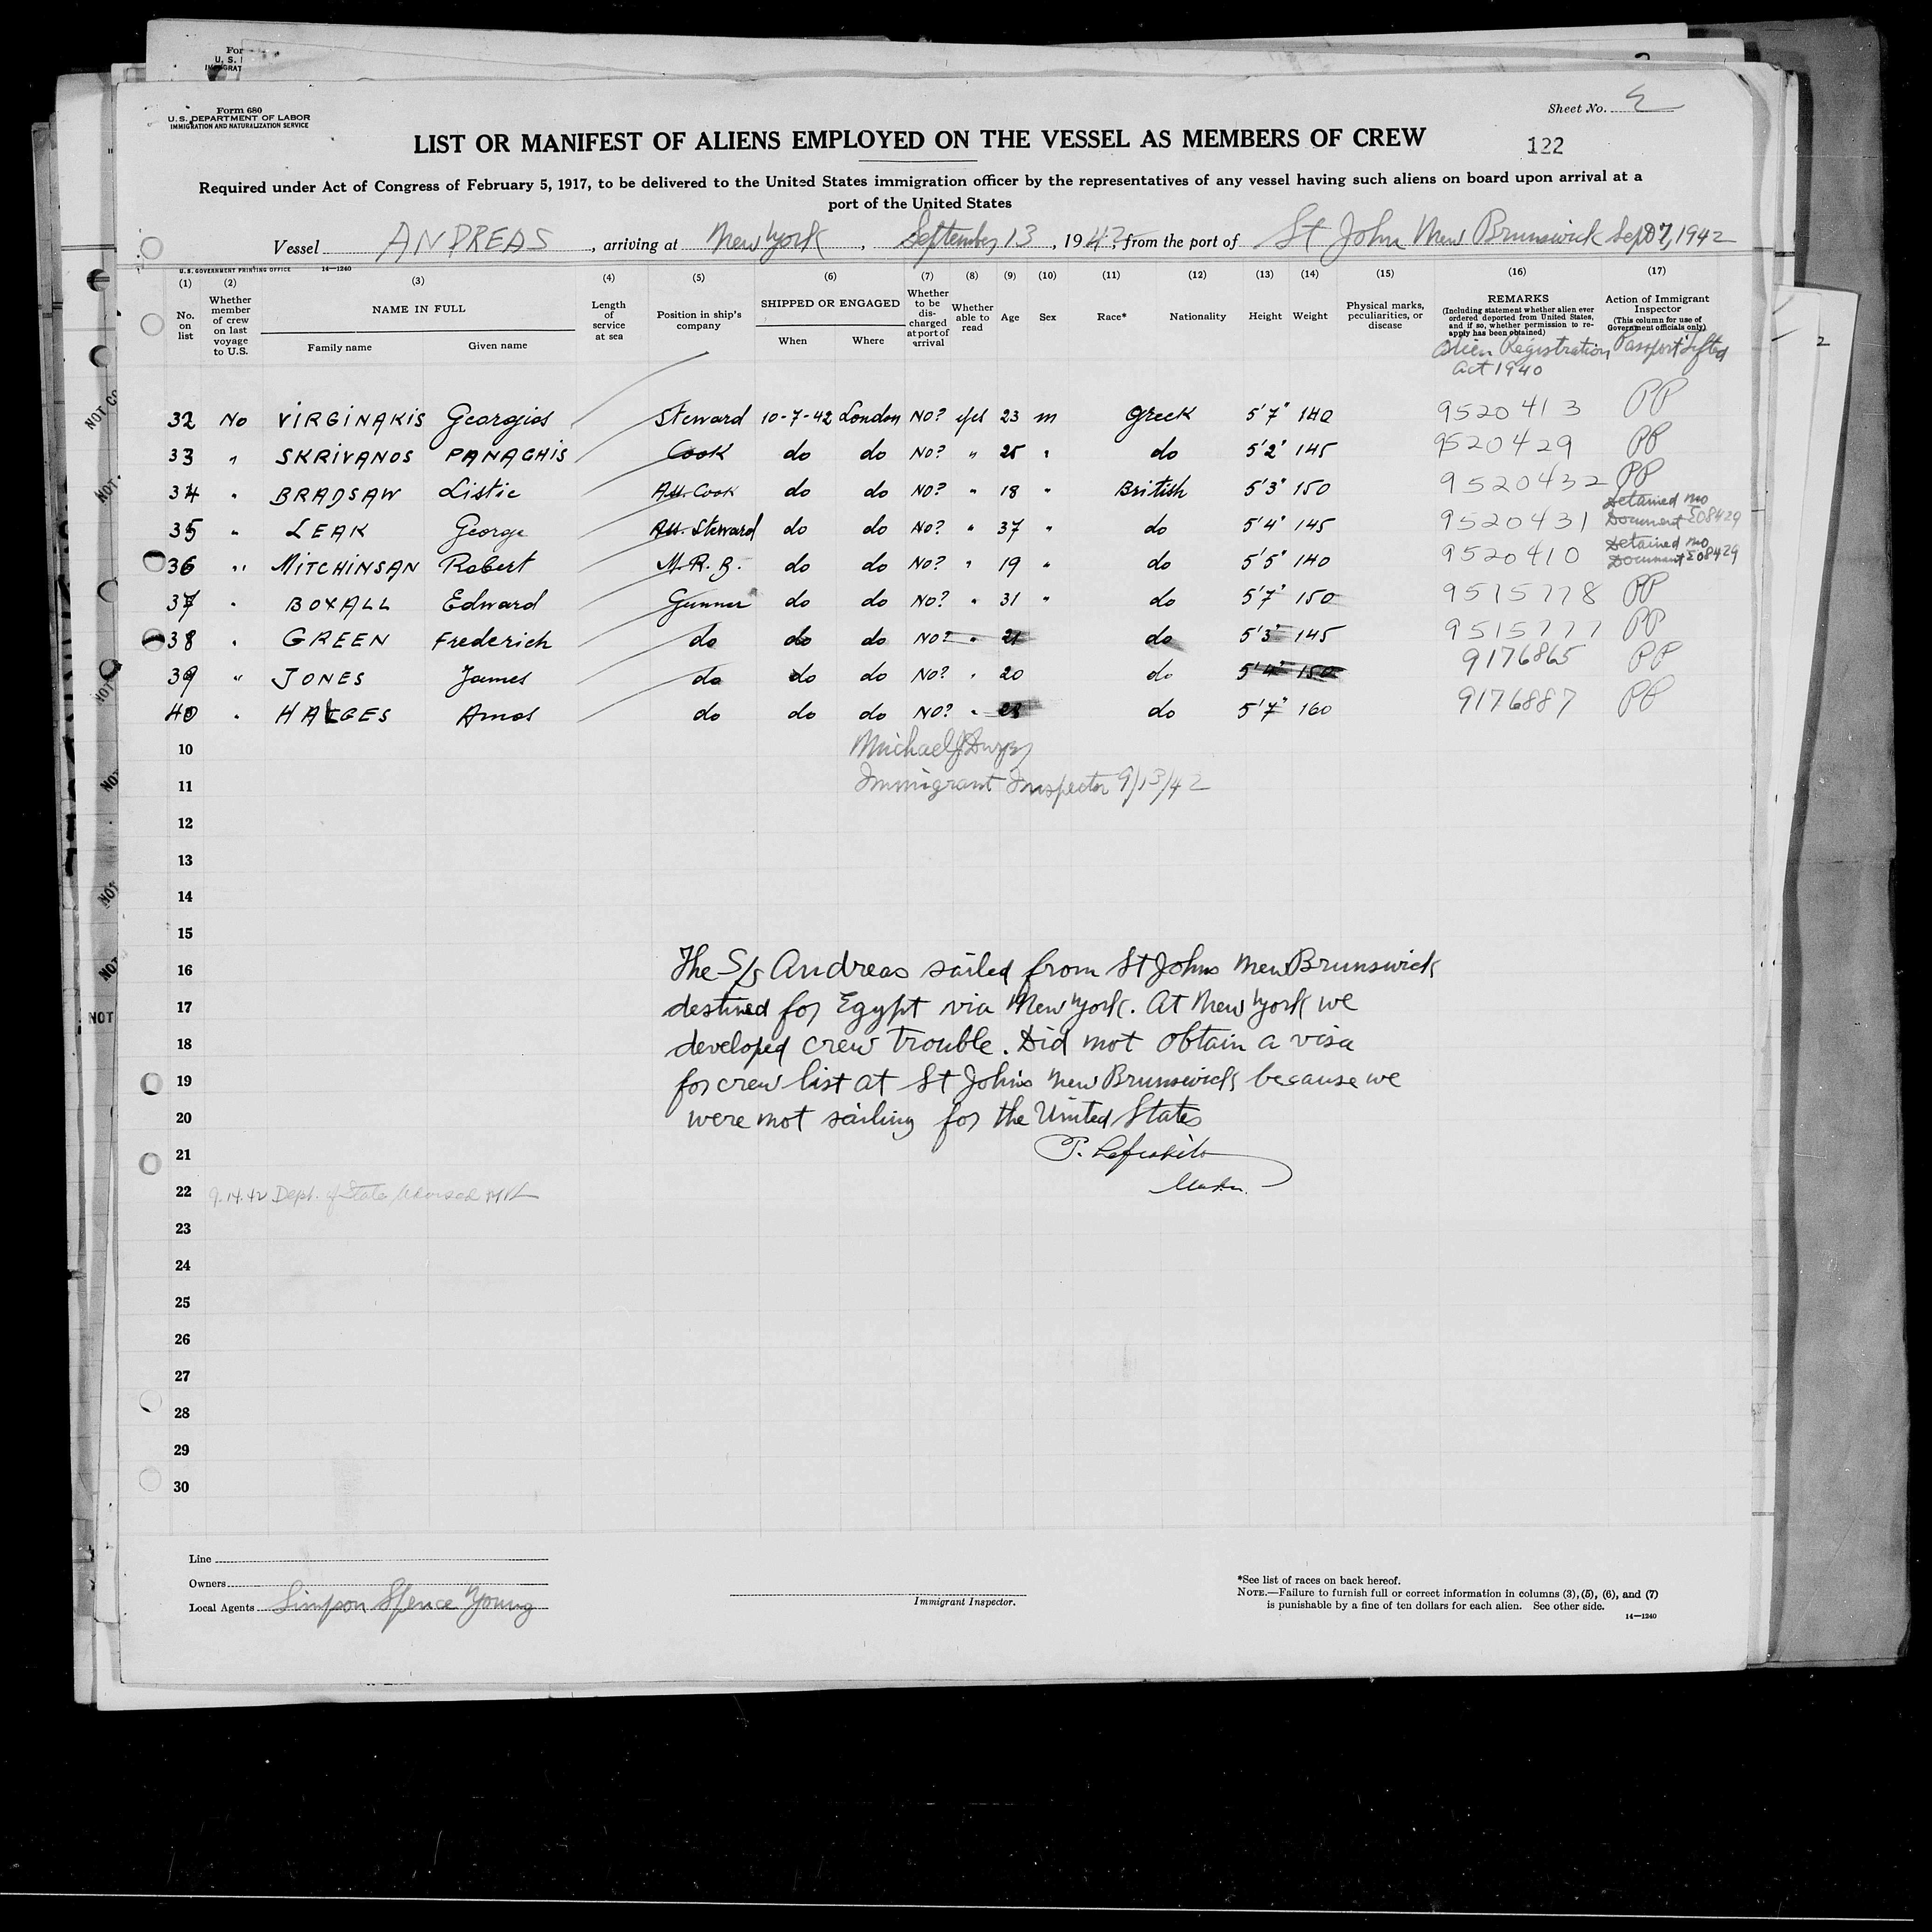 Form 680
U. S. DEPARTMENT OF LABOR
IMMIGRATION AND NATURALIZATION SERVICE
Sheet No.
LIST OR MANIFEST OF ALIENS EMPLOYED ON THE VESSEL AS MEMBERS OF CREW
122
Required under Act of Congress of February 5, 1917, to be delivered to the United States immigration officer by the representatives of any vessel having such aliens on board upon arrival at a
port of the United States
Vessel ANDREAS, arriving at New York, September 13, 1942, from the port of St John New Brunswick Sept 7, 1942
U. S. GOVERNMENT PRINTING OFFICE 14—1240
(1) No. on list
(2) Whether member of crew on last voyage to U.S.
(3) NAME IN FULL Family name Given name
(4) Length of service at sea
(5) Position in ship's company
(6) SHIPPED OR ENGAGED When Where
(7) Whether to be discharged at port of arrival
(8) Whether able to read
(9) Age
(10) Sex
(11) Race*
(12) Nationality
(13) Height
(14) Weight
(15) Physical marks, peculiarities, or disease
(16) REMARKS (Including statement whether alien ever ordered deported from United States, and if so, whether permission to reapply has been obtained)
Alien Registration Act 1940
(17) Action of Immigrant Inspector (This column for use of Government officials only)
Passport Lifted
32 No VIRGINAKIS Georgios Steward 10-7-42 London NO? yes 23 m Greek 5'7" 140 9520413 PP
33 " SKRIVANOS PANAGHIS Cook do do NO? " 25 " do 5'2" 145 9520429 PP
34 " BRADSAW Listie Ass. Cook do do NO? " 18 " British 5'3" 150 9520432 PP
35 " LEAK George Ass. Steward do do NO? " 37 " do 5'4" 145 9520431 Detained no Document E08429
36 " MITCHINSAN Robert M.R.B. do do NO? " 19 " do 5'5" 140 9520410 Detained no Document E08429
37 " BOXALL Edward Gunner do do NO? " 31 " do 5'7" 150 9515778 PP
38 " GREEN Frederich do do do NO? " 21 do 5'3" 145 9515777 PP
39 " JONES James do do do NO? " 20 do 5'4" 150 9176865 PP
40 " HALGES Amos do do do NO? " do 5'7" 160 9176887 PP
10 Michael J
11 Immigrant Inspector 9/13/42
12
13
14
15
16 The S/S Andreas sailed from St Johns New Brunswick
17 destined for Egypt via New York. At New York we
18 developed crew trouble. Did not obtain a visa
19 for crew list at St Johns New Brunswick because we
20 were not sailing for the United States
21
22 9.14.42 Dept. of State advised
Master
23
24
25
26
27
28
29
30
Line
Owners
Local Agents Simpson Spence Young
Immigrant Inspector.
*See list of races on back hereof.
NOTE.—Failure to furnish full or correct information in columns (3), (5), (6), and (7)
is punishable by a fine of ten dollars for each alien. See other side.
14—1240